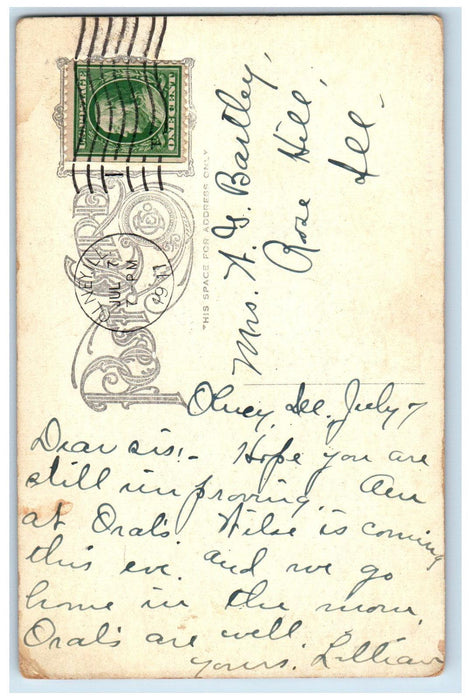 U.S. POSTAGE
ONE CENT
POST CARD
THIS SPACE FOR ADDRESS ONLY
OLNEY, ILL.
JUL 7
PM
1911
Mrs. A. G. Bartley,
Rose Hill,
Ill.
Olney, Ill. July 7
Dear sis:- Hope you are
still improving. Am
at Oral's. is coming
this eve. and we go
home in the morn.
Oral's are well.
yours. Lillian